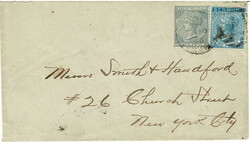 Messrs Smith & Handford
# 26 Church Street
New York City